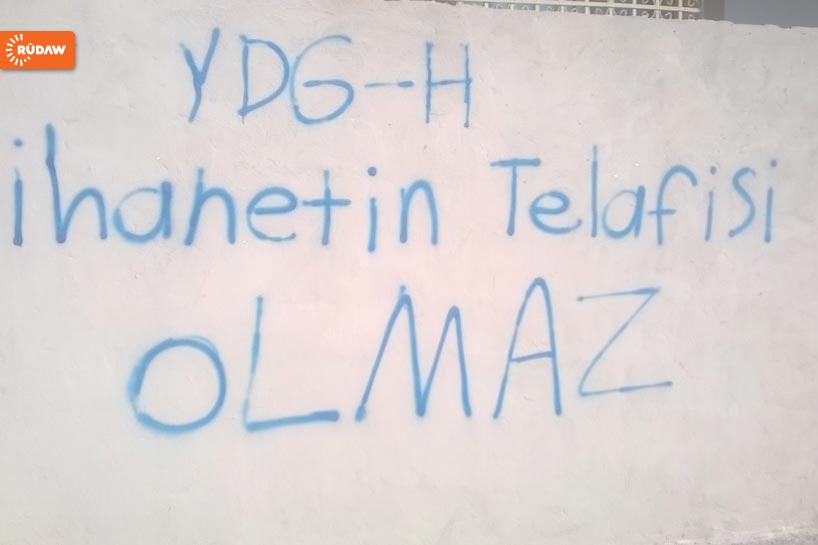 RÛDAW
YDG-H
ihanetin Telafisi
OLMAZ